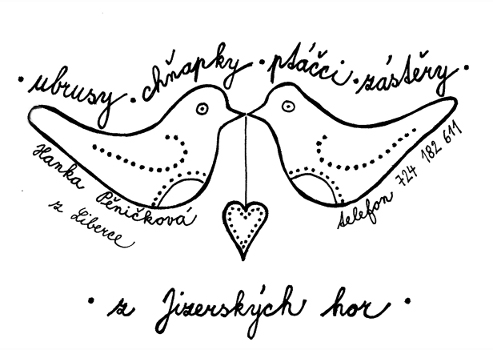 · ubrusy · chňapky · ptáčci · zástěry ·
Hanka Pěničková
z Liberce
telefon 724 182 611
· z Jizerských hor ·